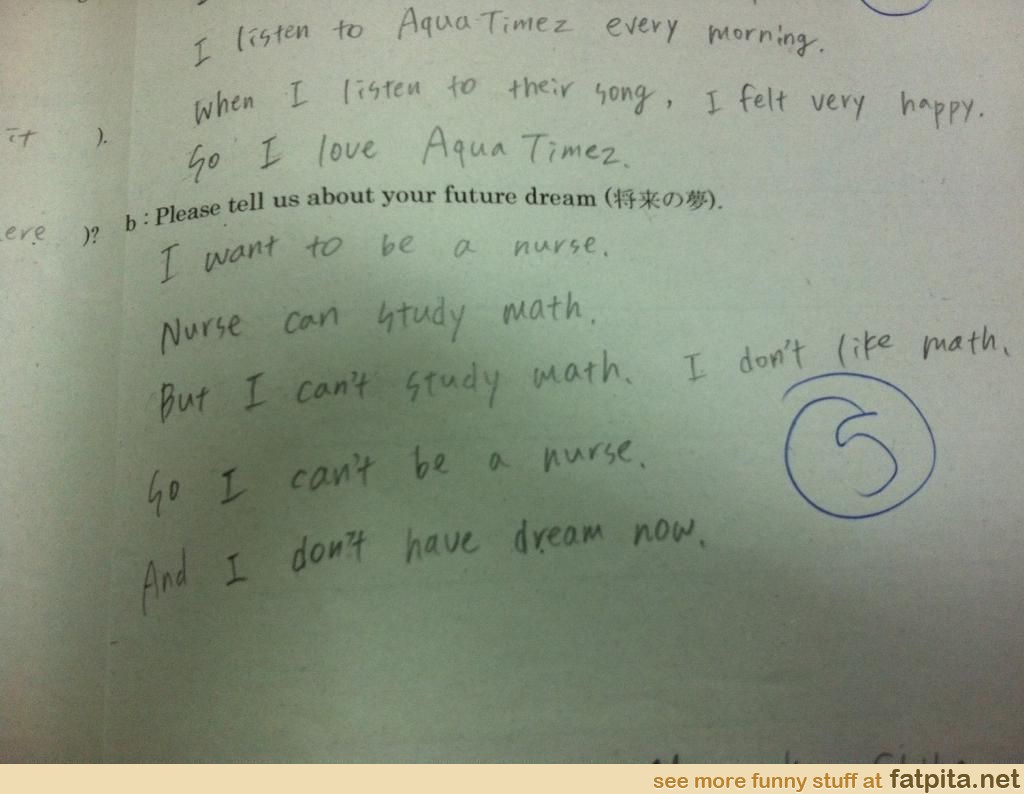 I listen to Aqua Timez every morning.
When I listen to their song, I felt very happy.
it ).
So I love Aqua Timez.
b : Please tell us about your future dream (将来の夢).
ere )?
I want to be a nurse.
Nurse can study math.
But I can't study math. I don't like math.
5
So I can't be a nurse.
And I don't have dream now.
see more funny stuff at fatpita.net